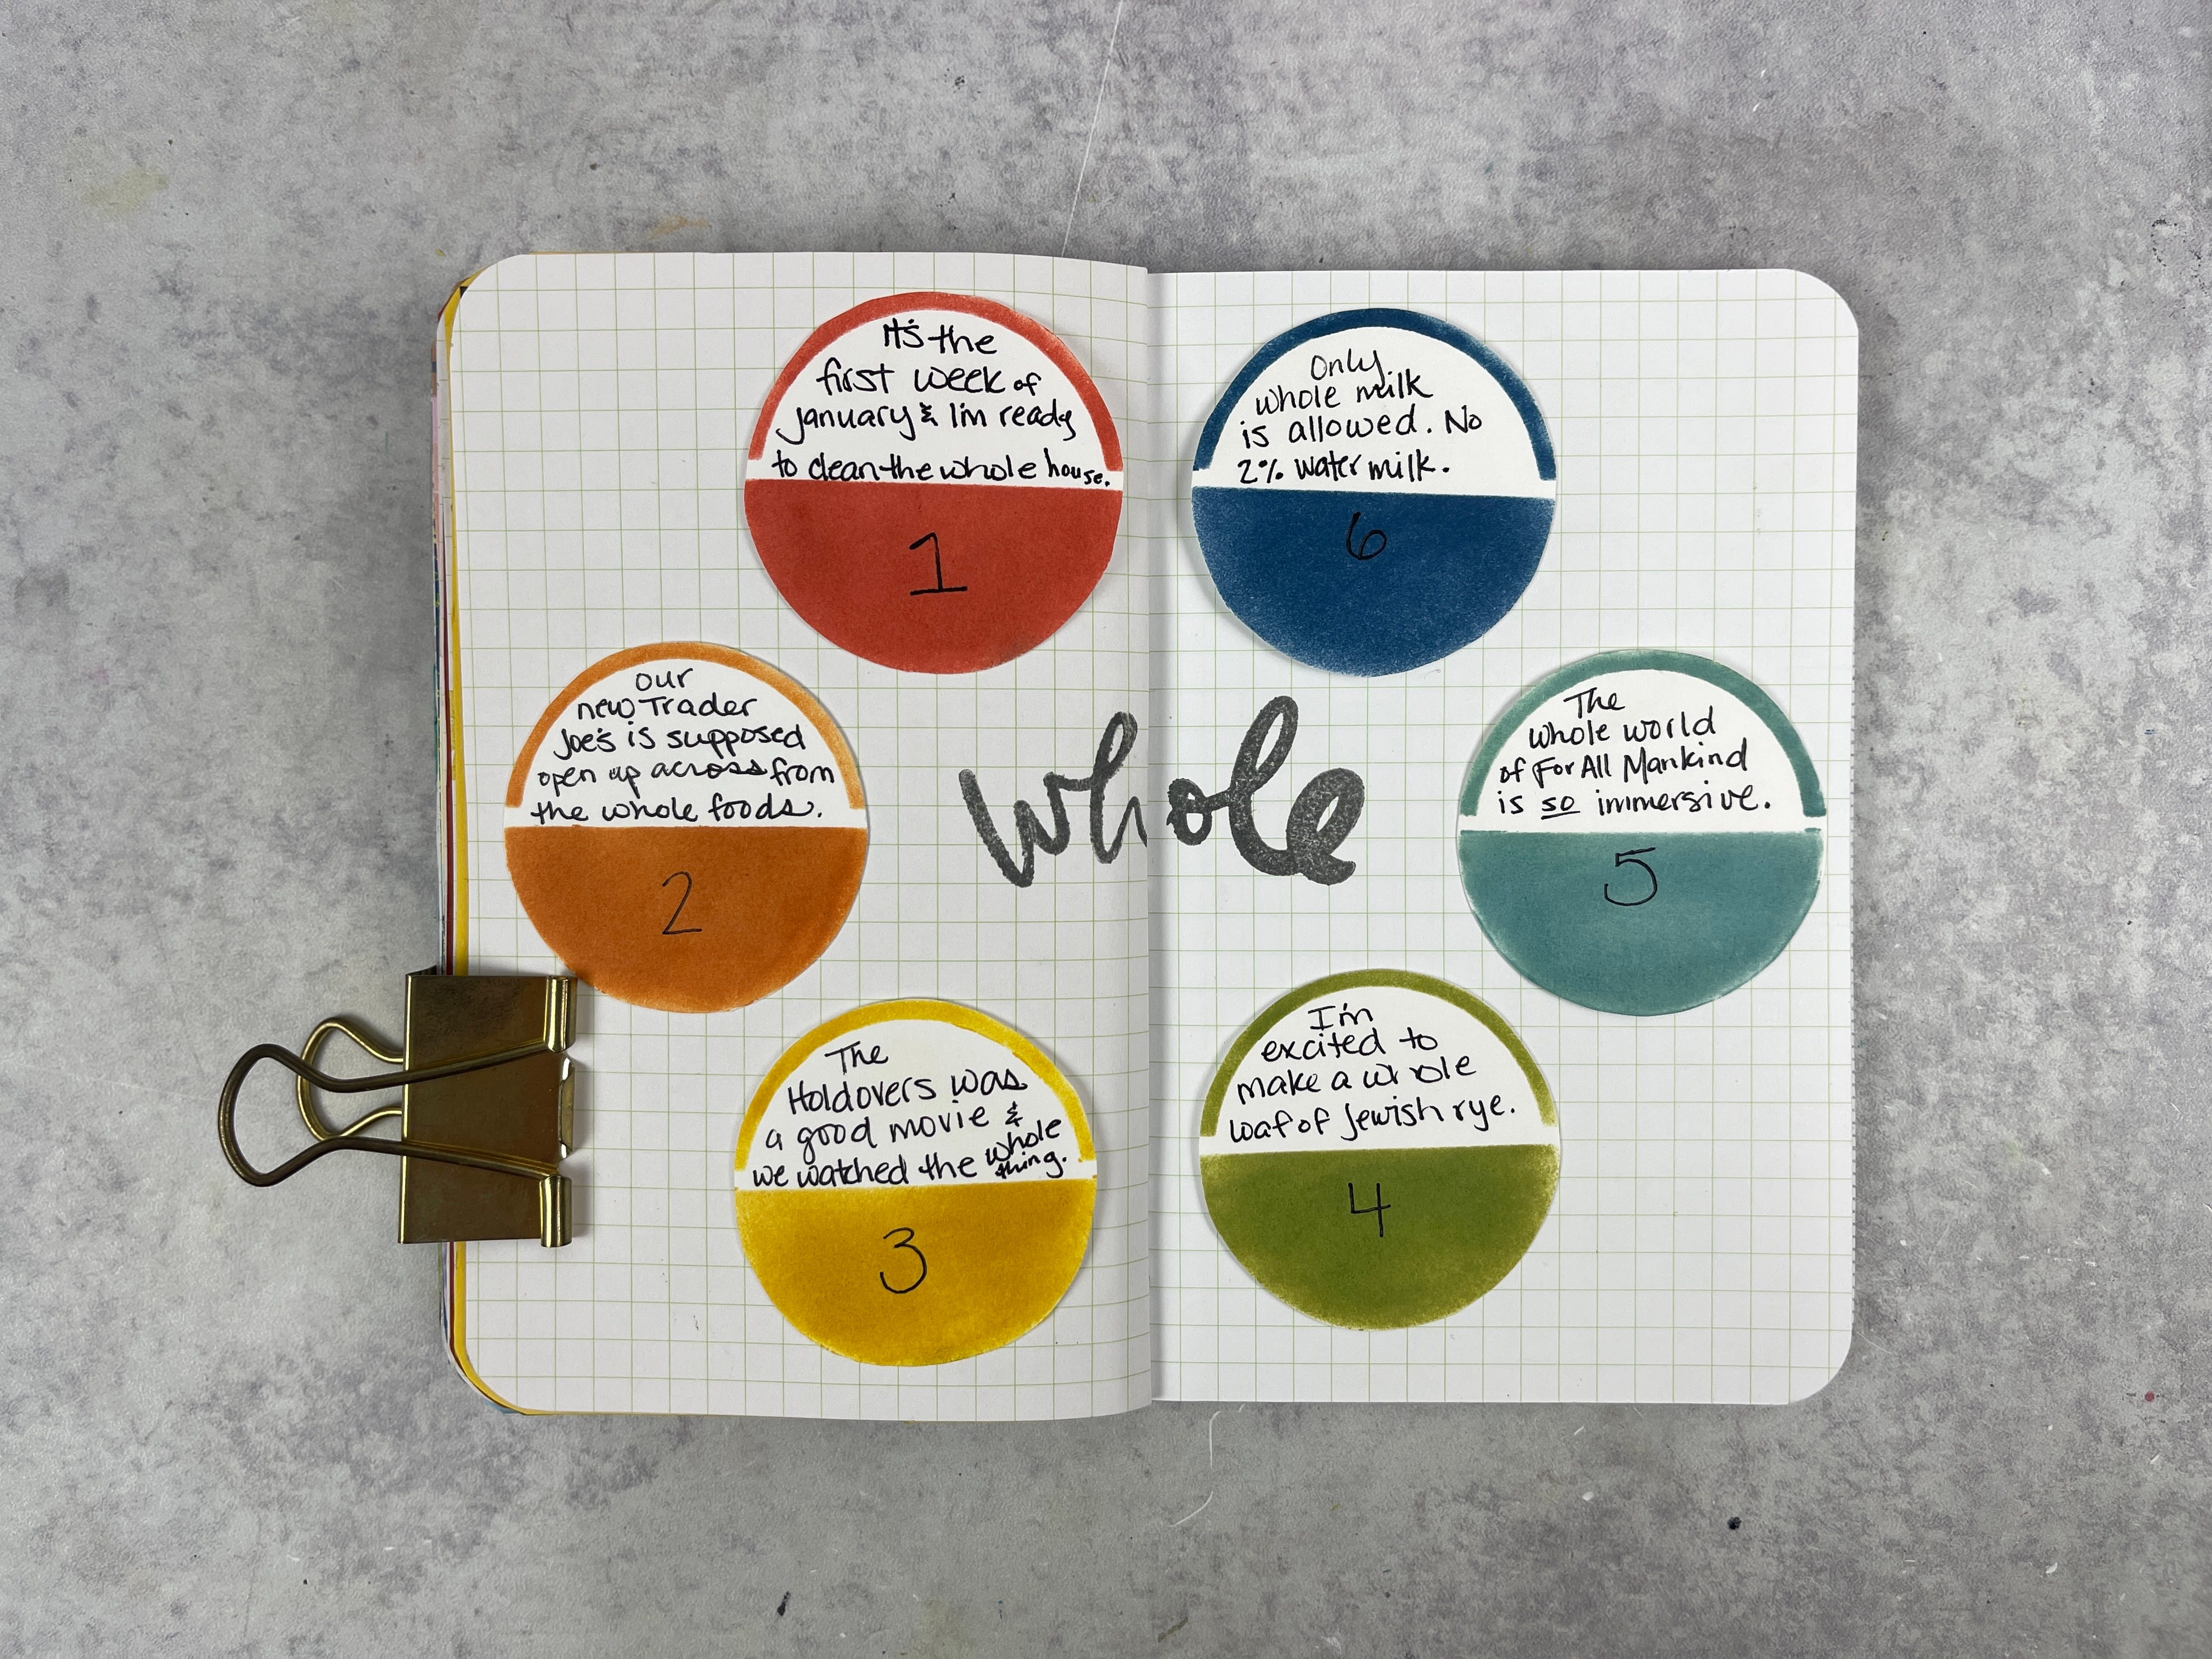 It's the
first week of
january & I'm ready
to clean the whole house.
1
our
new Trader
Joe's is supposed
open up across from
the whole foods.
2
The
Holdovers was
a good movie &
we watched the whole
thing.
3
whole
I'm
excited to
make a whole
loaf of Jewish rye.
4
The
whole world
of For All Mankind
is so immersive.
5
Only
whole milk
is allowed. No
2% water milk.
6